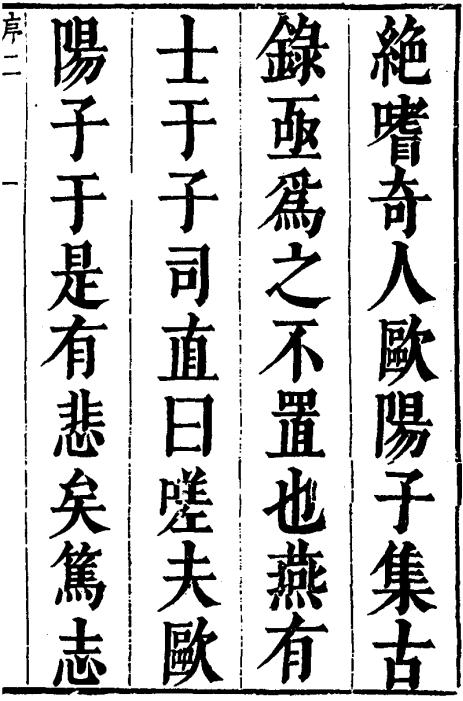 絶嗜奇人歐陽子集古
錄亟爲之不置也燕有
士于子司直曰嗟夫歐
陽子于是有悲矣篤志
序二
一